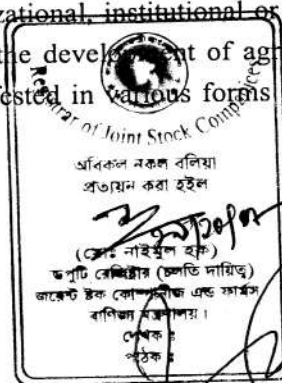 zational, institutional or
the development of agr
ested in various forms
Registrar of Joint Stock Companies
অবিকল নকল বলিয়া
প্রত্যয়ন করা হইল
(মোঃ নাইমুল হক)
ডেপুটি রেজিষ্ট্রার (চলতি দায়িত্ব)
জয়েন্ট ষ্টক কোম্পানীজ এন্ড ফার্মস
বাণিজ্য মন্ত্রণালয়।
লেখক :
পাঠক :